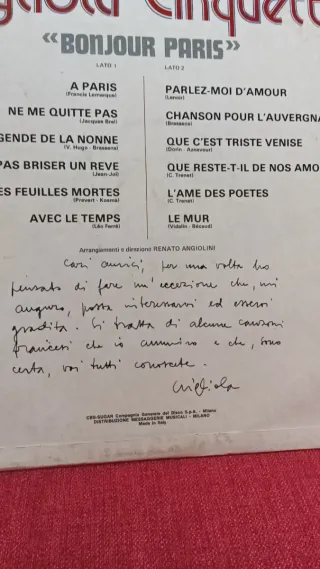 Gigliola Cinquetti
«BONJOUR PARIS»
LATO 1
A PARIS
(Francis Lemarque)
NE ME QUITTE PAS
(Jacques Brel)
GENDE DE LA NONNE
(V. Hugo - Brassens)
PAS BRISER UN REVE
(Jean-Jal)
ES FEUILLES MORTES
(Prevert - Kosma)
AVEC LE TEMPS
(Léo Ferré)
LATO 2
PARLEZ-MOI D'AMOUR
(Lenoir)
CHANSON POUR L'AUVERGNA
(Brassens)
QUE C'EST TRISTE VENISE
(Dorin - Aznavour)
QUE RESTE-T-IL DE NOS AMO
(C. Trenet)
L'AME DES POETES
(C. Trenet)
LE MUR
(Vidalin - Bécaud)
Arrangiamenti e direzione RENATO ANGIOLINI
Cari amici, per una volta ho
pensato di fare un'eccezione che, mi
auguro, possa interessarvi ed esservi
gradita. Si tratta di alcune canzoni
francesi che io ammiro e che, sono
certa, voi tutti conoscete.
Gigliola
CBS-SUGAR Compagnia Generale del Disco S.p.A. - Milano
DISTRIBUZIONE MESSAGGERIE MUSICALI - MILANO
Made in Italy